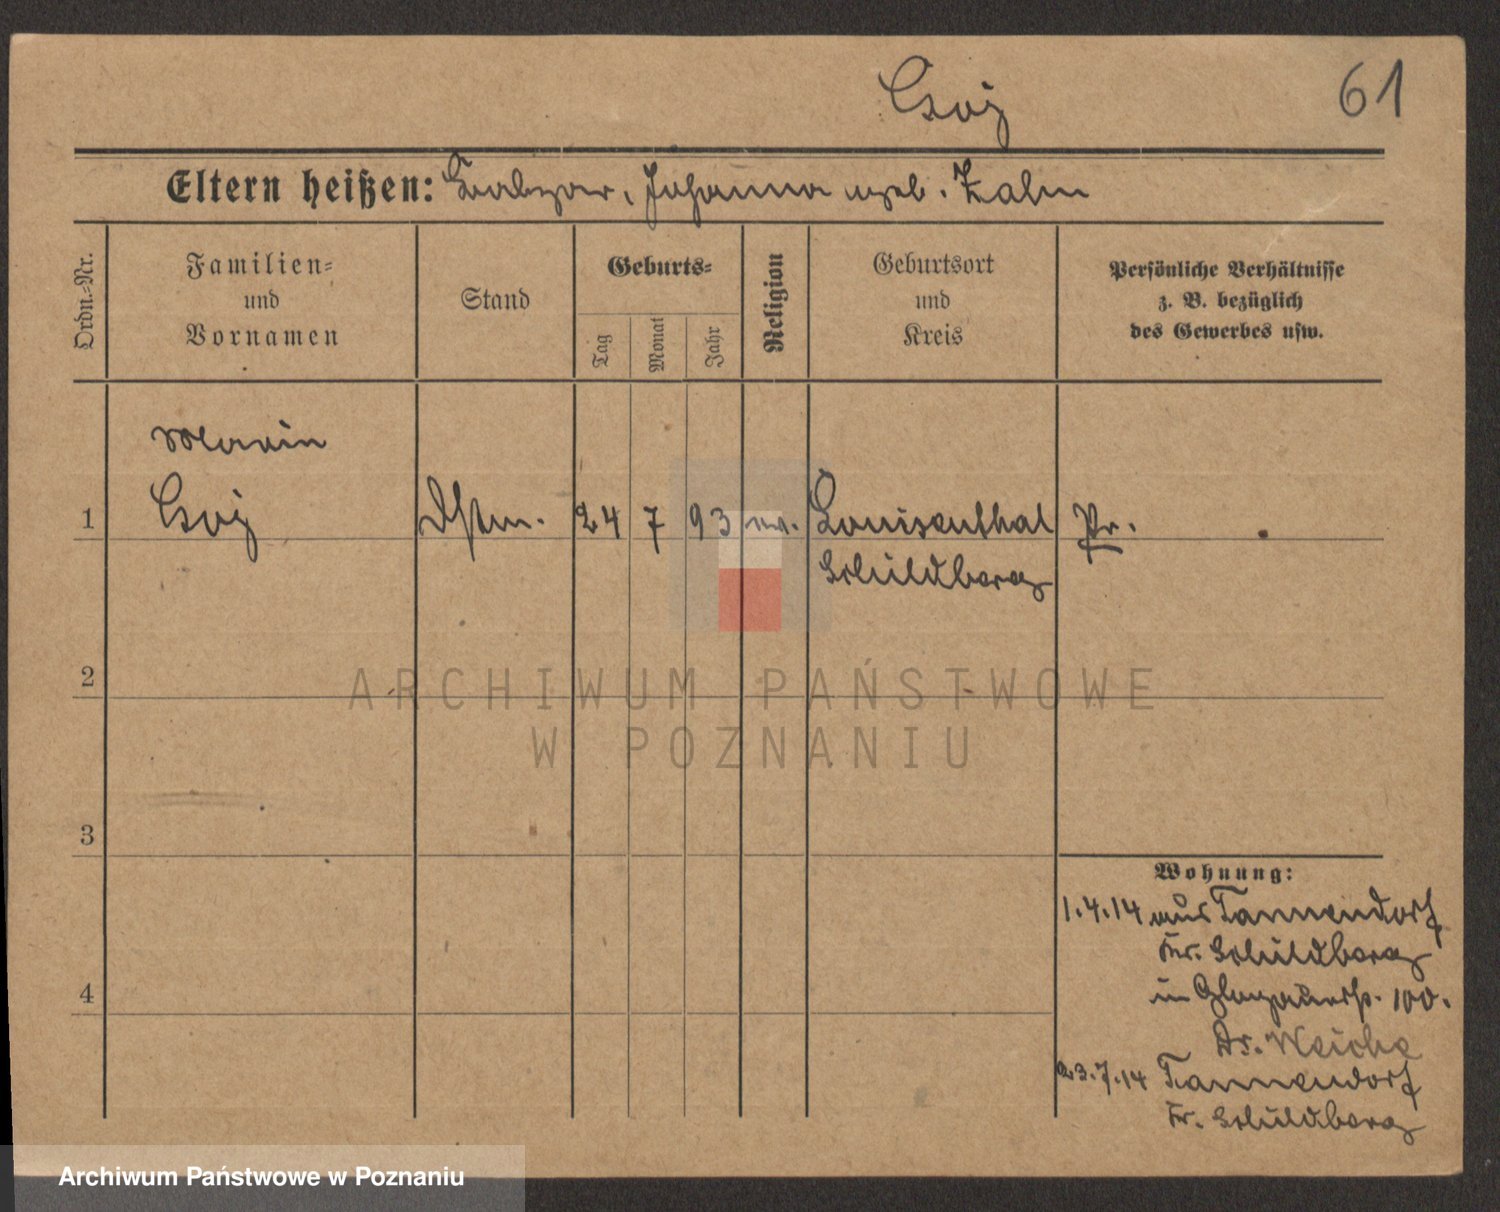 Csoj
61
Eltern heißen: Balzer, Johanna geb. Zalm
Ordn.-Nr.
Familien-
und
Vornamen
Stand
Geburts-
Tag
Monat
Jahr
Religion
Geburtsort
und
Kreis
Persönliche Verhältnisse
z. B. bezüglich
des Gewerbes usw.
Marie
1 Csoj Dstm. 24 7 93 ev. Louisenthal Pr.
Schildberg
2
3
4
Wohnung:
1.4.14 aus Tannendorf
Kr. Schildberg
in Glogauerstr. 100.
Dr. Weiche
23.7.14 Tannendorf
Kr. Schildberg
ARCHIWUM PAŃSTWOWE
W POZNANIU
Archiwum Państwowe w Poznaniu